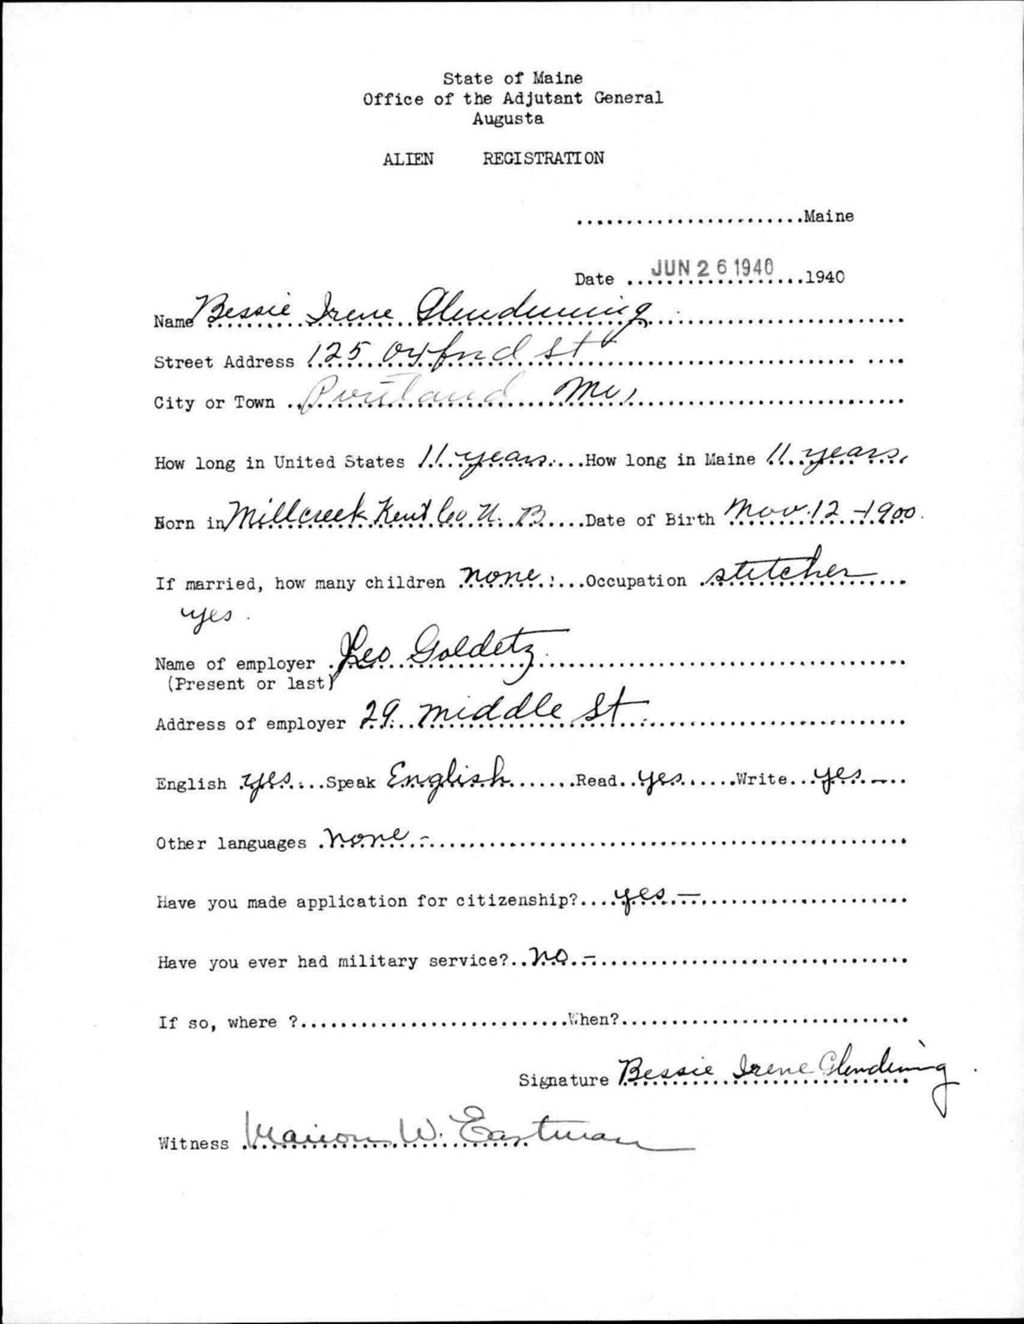 State of Maine
Office of the Adjutant General
Augusta
ALIEN REGISTRATION
......................Maine
Date ...JUN 26 1940...1940
Name Bessie Irene Glendenning
Street Address 125 Oxford St
City or Town Portland Me,
How long in United States 11 years How long in Maine 11 years,
Born in Millcreek Kent Co N. B. Date of Birth Nov. 12 - 1900.
If married, how many children none. Occupation stitcher
yes.
Name of employer Leo Goldetz.
(Present or last)
Address of employer 29. Middle St.
English yes. Speak English Read yes. Write yes. —
Other languages none. -
Have you made application for citizenship? yes. —
Have you ever had military service? no. -
If so, where ?......................When?......................
Signature Bessie Irene Glendening
Witness Marion W. Eastman